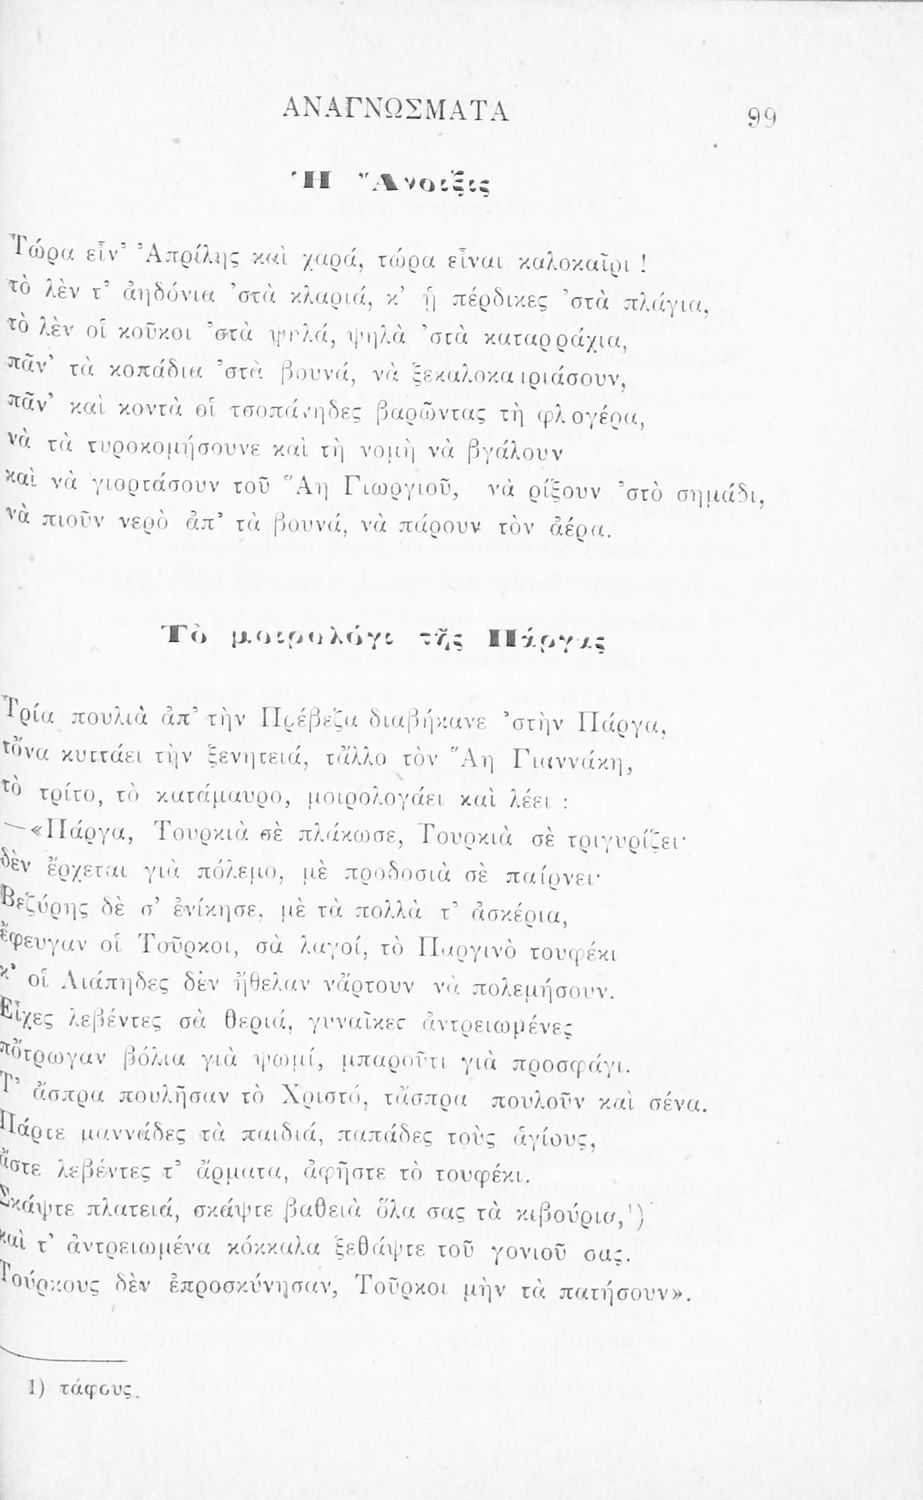 ΑΝΑΓΝΩΣΜΑΤΑ 99
Ἡ Ἄνοιξις
Τώρα εἶν᾿ Ἀπρίλης καὶ χαρά, τώρα εἶναι καλοκαῖρι !
τὸ λὲν τ᾿ ἀηδόνια ᾿στὰ κλαριά, κ᾿ ᾑ πέρδικες ᾿στὰ πλάγια,
τὸ λὲν οἱ κοῦκοι ᾿στὰ ψηλά, ψηλὰ ᾿στὰ καταρράχια,
πᾶν᾿ τὰ κοπάδια ᾿στὰ βουνά, νὰ ξεκαλοκαιριάσουν,
πᾶν᾿ καὶ κοντὰ οἱ τσοπάνηδες βαρῶντας τὴ φλογέρα,
νὰ τὰ τυροκομήσουνε καὶ τὴ νομὴ νὰ βγάλουν
καὶ νὰ γιορτάσουν τοῦ Ἅη Γιωργιοῦ, νὰ ρίξουν ᾿στὸ σημάδι,
νὰ πιοῦν νερὸ ἀπ᾿ τὰ βουνά, νὰ πάρουν τὸν ἀέρα.
Τὸ μοιρολόγι τῆς Πάργας
Τρία πουλιὰ ἀπ᾿ τὴν Πρέβεζα διαβήκανε ᾿στὴν Πάργα,
τὄνα κυττάει τὴν ξενητειά, τἄλλο τὸν Ἅη Γιαννάκη,
τὸ τρίτο, τὸ κατάμαυρο, μοιρολογάει καὶ λέει :
—«Πάργα, Τουρκιὰ σὲ πλάκωσε, Τουρκιὰ σὲ τριγυρίζει·
δὲν ἔρχεται γιὰ πόλεμο, μὲ προδοσιὰ σὲ παίρνει·
Βεζύρης δὲ σ᾿ ἐνίκησε, μὲ τὰ πολλὰ τ᾿ ἀσκέρια,
ἔφευγαν οἱ Τοῦρκοι, σὰ λαγοί, τὸ Παργινὸ τουφέκι
κ᾿ οἱ Λιάπηδες δὲν ἤθελαν νἄρτουν νὰ πολεμήσουν.
Εἶχες λεβέντες σὰ θεριά, γυναῖκες ἀντρειωμένες
πὄτρωγαν βόλια γιὰ ψωμί, μπαροῦτι γιὰ προσφάγι.
Τ᾿ ἄσπρα πουλῆσαν τὸ Χριστό, τἄσπρα πουλοῦν καὶ σένα.
Πάρτε μαννάδες τὰ παιδιά, παπάδες τοὺς ἁγίους,
ἄστε λεβέντες τ᾿ ἄρματα, ἀφῆστε τὸ τουφέκι.
Σκάψτε πλατειά, σκάψτε βαθειὰ ὅλα σας τὰ κιβούρια,¹)
καὶ τ᾿ ἀντρειωμένα κόκκαλα ξεθάψτε τοῦ γονιοῦ σας.
Τούρκους δὲν ἐπροσκύνησαν, Τοῦρκοι μὴν τὰ πατήσουν».
1) τάφους.